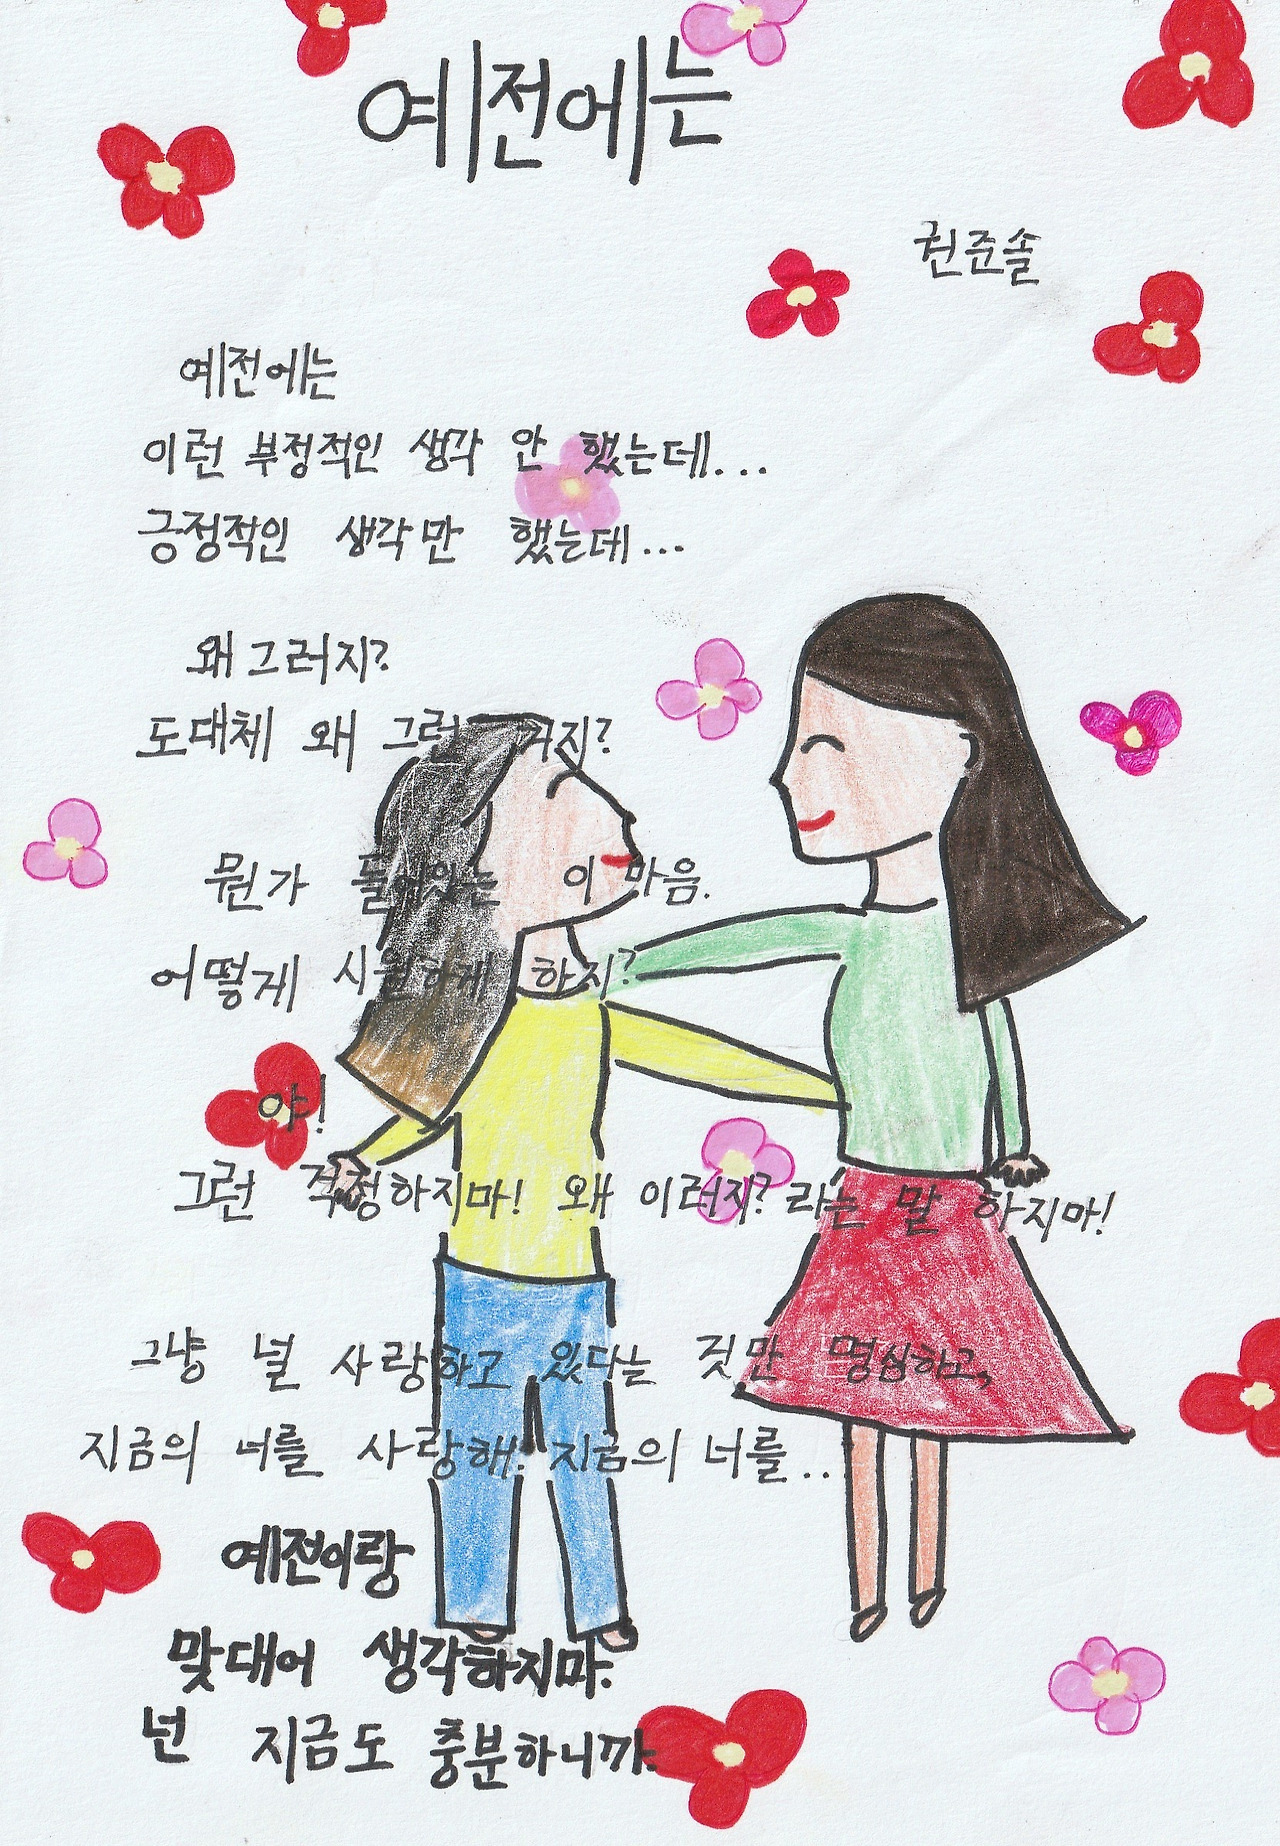 예전에는
권준솔
예전에는
이런 부정적인 생각 안 했는데...
긍정적인 생각만 했는데...
왜 그러지?
도대체 왜 그러지?
뭔가 들어있는 이 마음.
어떻게 시원하게 하지?
야!
그런 걱정하지마! 왜 이러지? 라는 말 하지마!
그냥 널 사랑하고 있다는 것만 명심하고,
지금의 너를 사랑해! 지금의 너를..
예전이랑
맞대어 생각하지마.
넌 지금도 충분하니까.